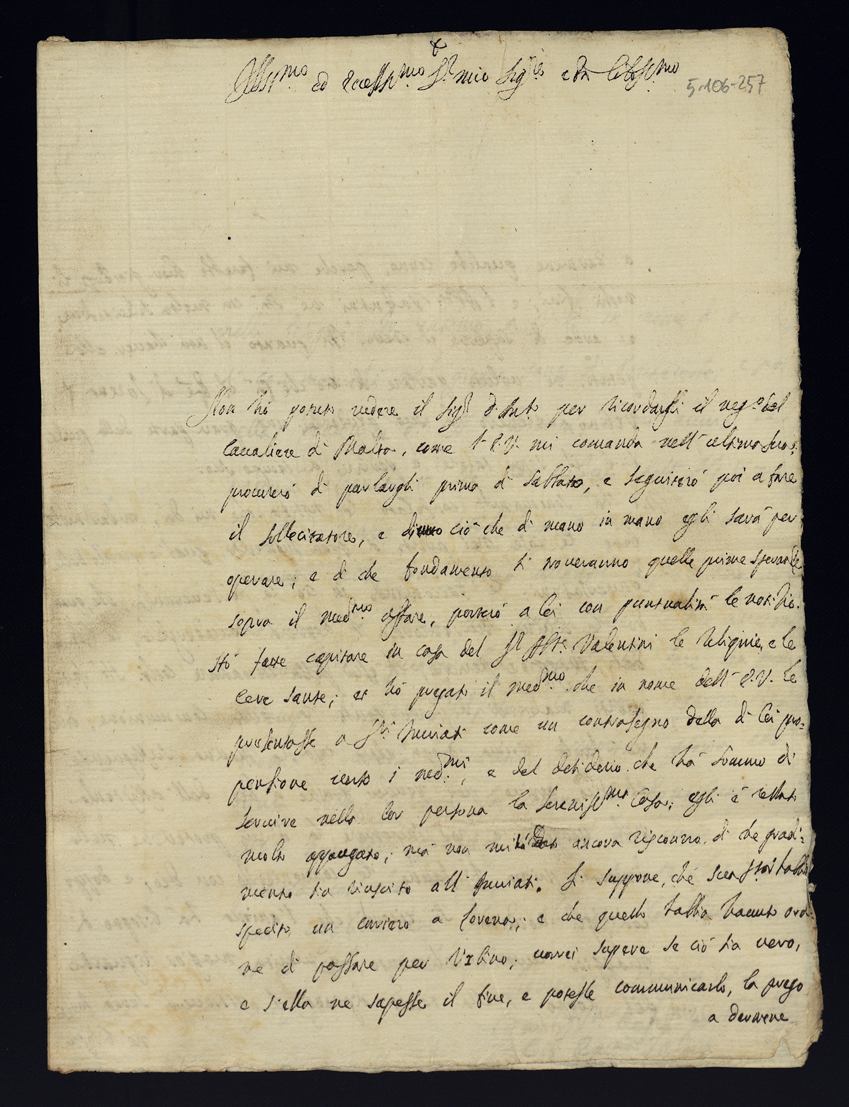 Illmo ed Eccellmo Sr mio Sigre e Prn Colmo
5-106-257
Non hò potuto vedere il Sigr d'Aut. per ricordargli il nego del
Cavaliere di Malta, come l'E.V. mi comanda nell'ultima sua;
procurerò di parlargli prima di sabbato, e seguiterò poi a fare
il sollecitatore, e di ciò che di mano in mano egli sarà per
operare, e di che fondamento si troveranno quelle prime speranze
sopra il medmo affare, porterò a lei con puntualità le notizie.
Hò fatte capitare in casa del Sr Valentini le Reliquie, e le
Cere sante; et hò pregato il medmo che in nome dell'E.V. le
presentasse a Inviati come un contrasegno della di lei pro-
pensione verso i medmi, e del desiderio che hà sommo di
servire nella lor persona la Serenissma Casa; egli è restato
molto appagato, mà non ancora riscontro di che gradi-
mento sia riuscito all'Inviati. Si suppone, che habbi
spedito un corriero a Lorena, e che questo habbia havuto ordi-
ne di passare per Urbino; vorrei sapere se ciò sia vero,
e s'ella ne sapesse il fine, e potesse communicarlo, la prego
a darmene